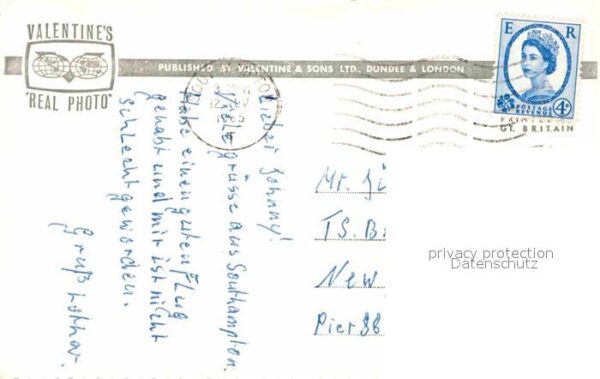 VALENTINE'S
"REAL PHOTO"
PUBLISHED BY VALENTINE & SONS LTD., DUNDEE & LONDON
E R
POSTAGE REVENUE
4D
PRINTED IN
GT. BRITAIN
Lieber Johnny!
Viele grüsse aus Southampton.
Habe einen guten Flug
gehabt und mir ist nicht
schlecht geworden.
Gruß
Mr.
T.S.
New
Pier 88
privacy protection
Datenschutz